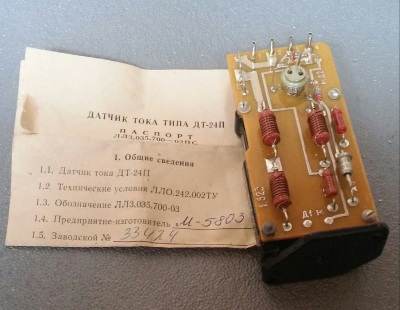 ДАТЧИК ТОКА ТИПА ДТ-24П
ПАСПОРТ
ЛЛ3.035.700—03ПС
1. Общие сведения
1.1. Датчик тока ДТ-24П
1.2. Технические условия ЛЛО.242.002ТУ
1.3. Обозначение ЛЛ3.035.700-03
1.4. Предприятие-изготовитель «М-5803
1.5. Заводской № 33424
1523
Д1